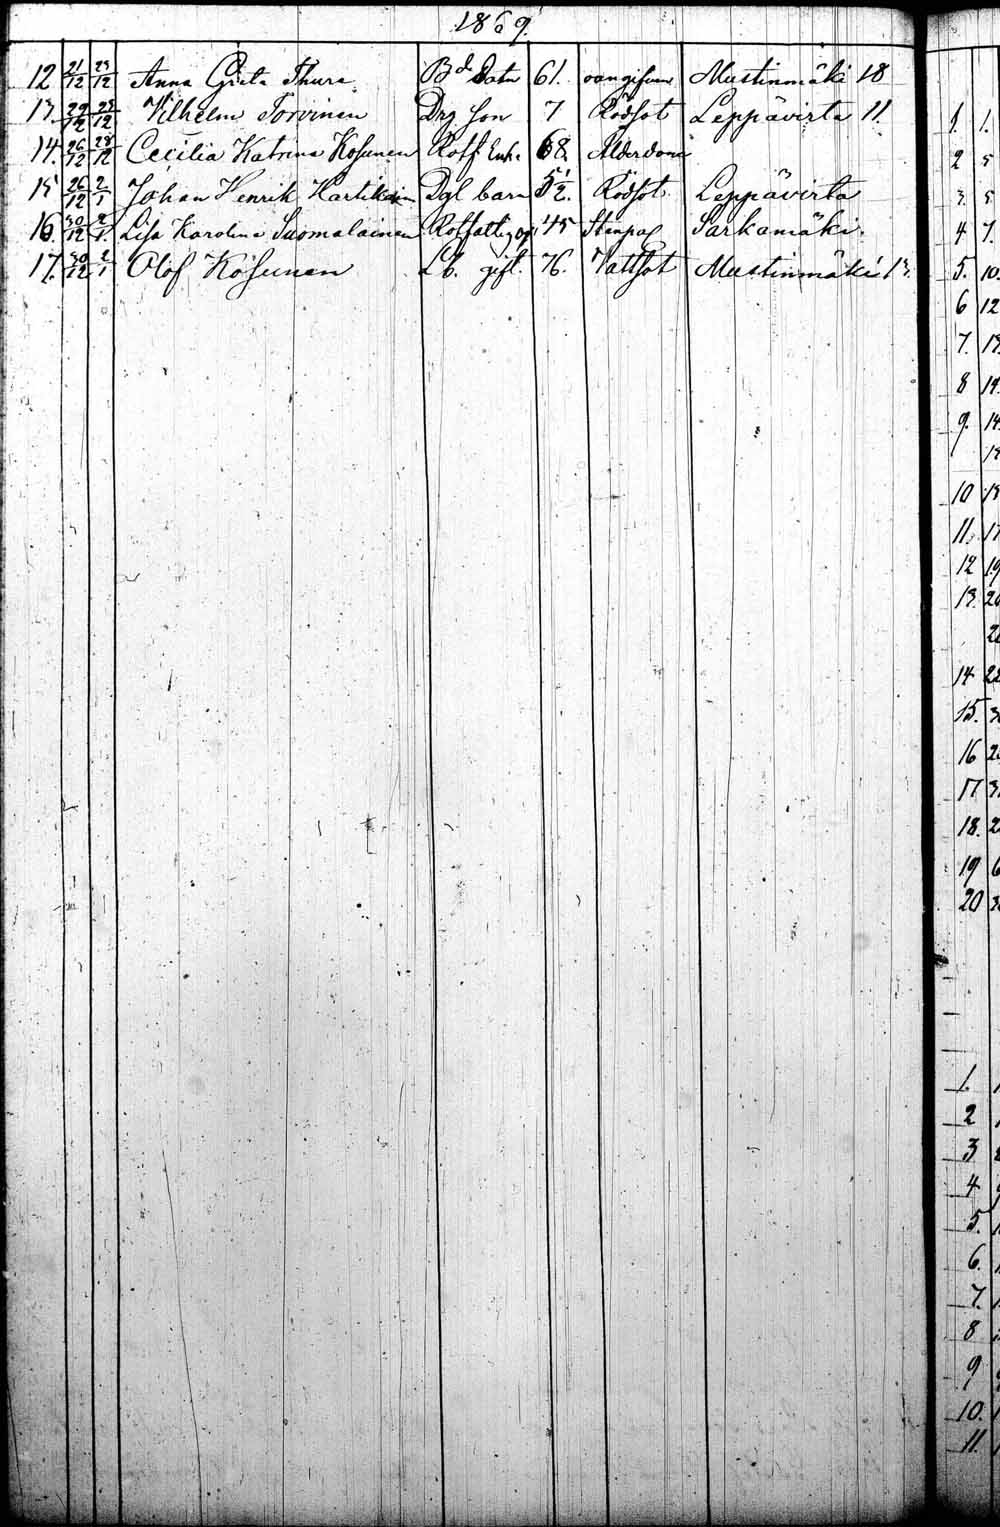 1869.
12 21/12 23/12 Anna Greta Thura Bde Datr 61. oangifven Mustinmäki 18
13. 22/12 28/12 Vilhelm Torvinen Drg son 7 Rödsot Leppävirta 11
14. 26/12 28/12 Cecilia Katrina Kosunen Rotf. Enk. 68. Ålderdom
15 26/12 2/1 Johan Henrik Hartikain Dgl barn 5 1/2. Rödsot Leppävirta
16. 30/12 2/1. Lisa Karolina Suomalainen Rotfattig 45 Stenpas Sarkamäki.
17. 30/12 2/1 Olof Kosunen Lb. gift. 76. Vattsot Mustinmäki 13.
1. 1.
2 5
3. 5.
4 7.
5. 10.
6 12
7. 13.
8 14.
9. 14.
10 15
11. 17
12 19
13. 20
14 22
15.
16
17
18.
19 6
20
1.
2
3
4
5.
6.
7.
8
9
10.
11.